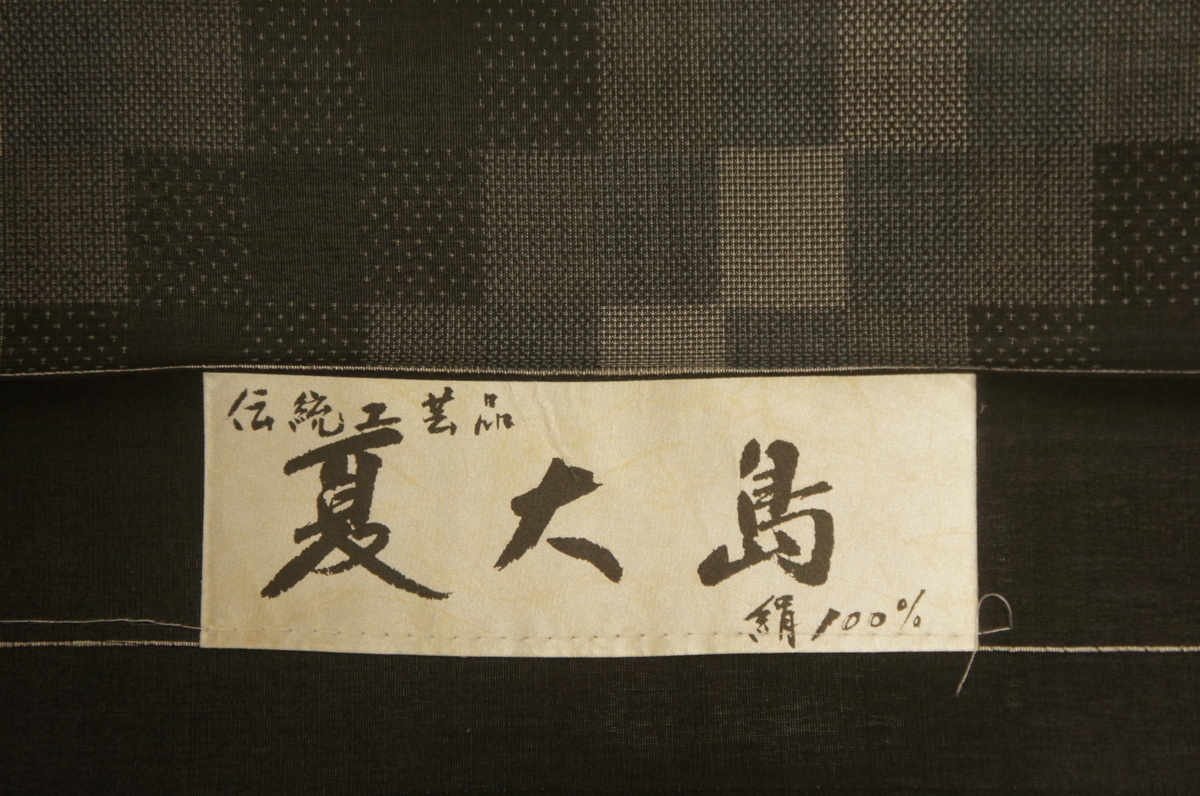 伝統工芸品
夏大島
絹100%